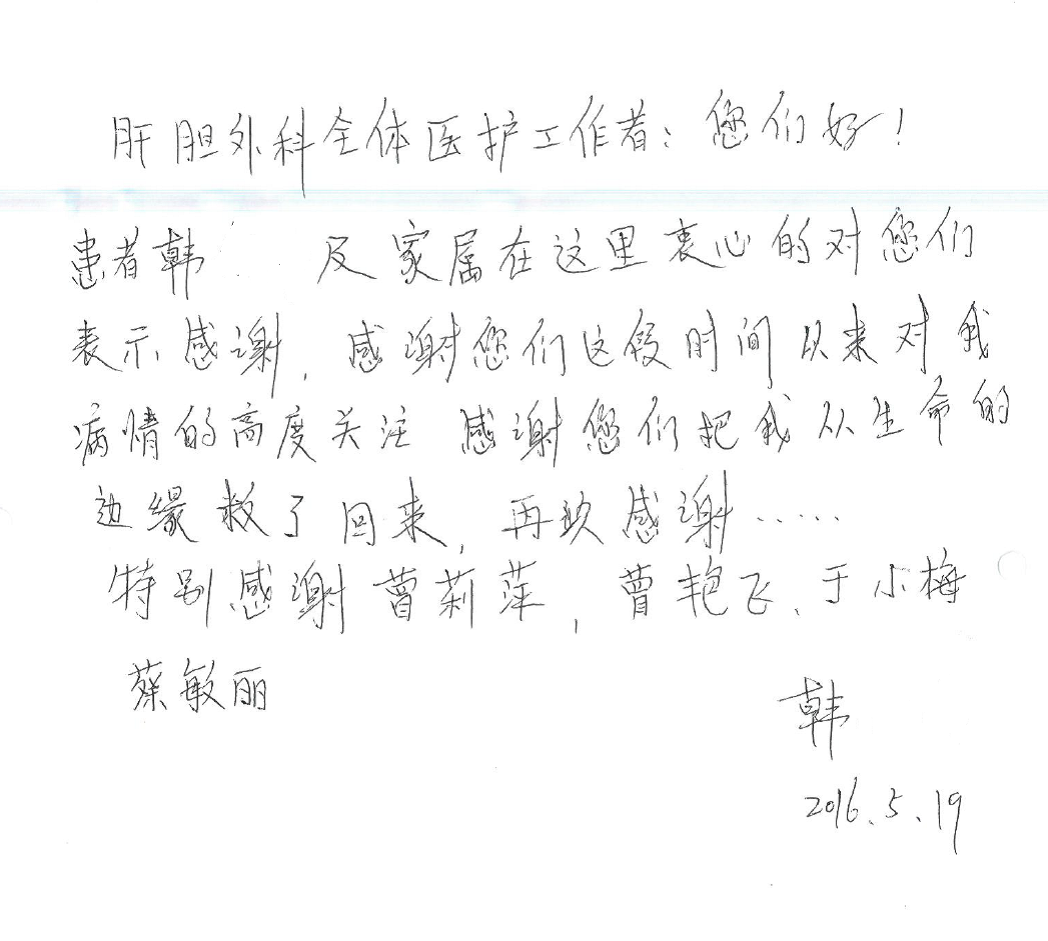 肝胆外科全体医护工作者：您们好！
患者韩 及家属在这里衷心的对您们
表示感谢，感谢您们这段时间以来对我
病情的高度关注 感谢您们把我从生命的
边缘救了回来，再次感谢……
特别感谢曹莉萍，曹艳飞、于小梅
蔡敏丽
韩
2016.5.19